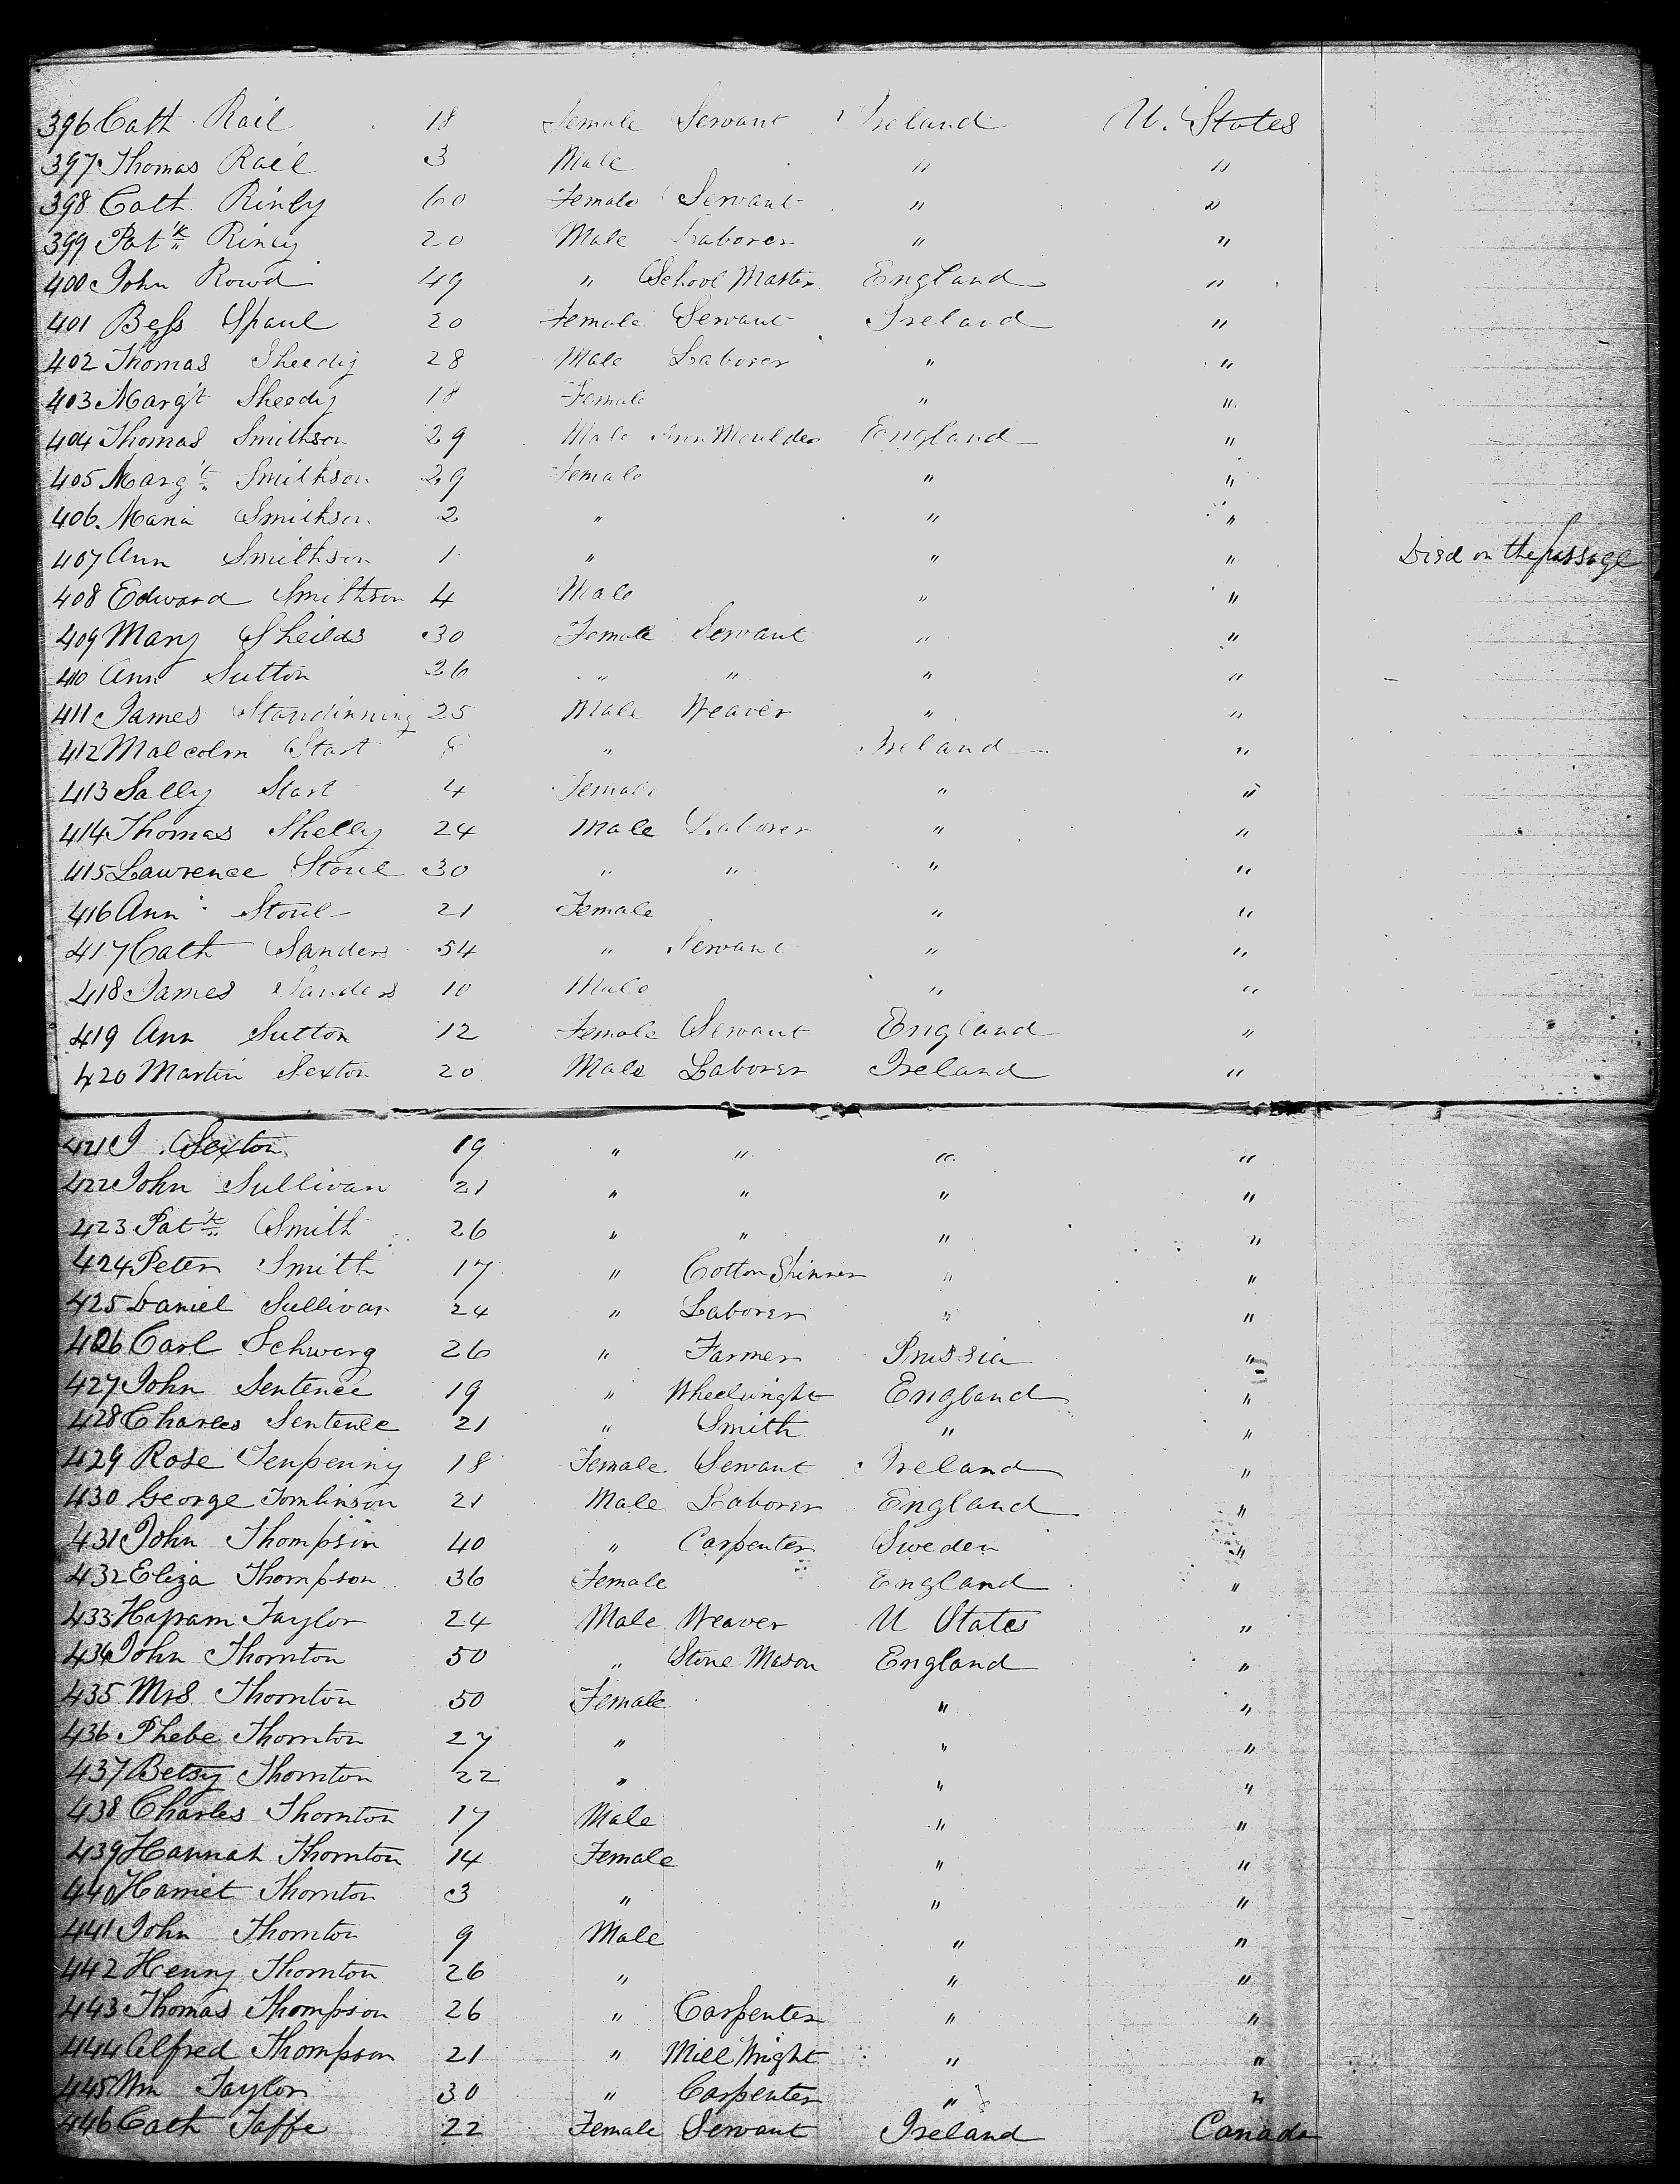 396 Cath Rail 18 Female Servant Ireland U. States
397 Thomas Rail 3 Male " "
398 Cath Rinly 60 Female Servant " "
399 Pat'k Rincy 20 Male Laborer " "
400 John Rowd 49 " School Master England "
401 Bess Spaul 20 Female Servant Ireland "
402 Thomas Sheedy 28 Male Laborer " "
403 Marg't Sheedy 18 Female " "
404 Thomas Smithson 29 Male Moulder England "
405 Marg't Smithson 29 Female " "
406 Maria Smithson 2 " " "
407 Ann Smithson 1 " " " Died on the passage
408 Edward Smithson 4 Male " "
409 Mary Sheilds 30 Female Servant " "
410 Ann Sutton 26 " " " "
411 James Standinning 25 Male Weaver " "
412 Malcolm Start " Ireland "
413 Sally Start 4 Female " "
414 Thomas Shelly 24 Male Laborer " "
415 Lawrence Stoul 30 " " " "
416 Ann Stoul 21 Female " "
417 Cath Sanders 54 " Servant " "
418 James Sanders 10 Male " "
419 Ann Sutton 12 Female Servant England "
420 Martin Sexton 20 Male Laborer Ireland "
421 J Sexton 19 " " " "
422 John Sullivan 21 " " " "
423 Pat'k Smith 26 " " " "
424 Peter Smith 17 " Cotton Spinner " "
425 Daniel Sullivan 24 " Laborer " "
426 Carl Schwarg 26 " Farmer Prussia "
427 John Sentence 19 " Wheelwright England "
428 Charles Sentence 21 " Smith " "
429 Rose Tenpenny 18 Female Servant Ireland "
430 George Tomlinson 21 Male Laborer England "
431 John Thompson 40 " Carpenter Sweden "
432 Eliza Thompson 36 Female England "
433 Hyram Taylor 24 Male Weaver U States "
434 John Thornton 50 " Stone Mason England "
435 Mrs Thornton 50 Female " "
436 Phebe Thornton 27 " " "
437 Betsy Thornton 22 " " "
438 Charles Thornton 17 Male " "
439 Hannah Thornton 14 Female " "
440 Harriet Thornton 3 " " "
441 John Thornton 9 Male " "
442 Henry Thornton 26 " " "
443 Thomas Thompson 26 " Carpenter " "
444 Alfred Thompson 21 " Mill Wright " "
445 Wm Taylor 30 " Carpenter " "
446 Cath Taffe 22 Female Servant Ireland Canada